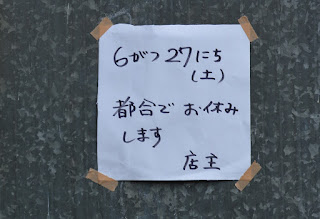 6がつ27にち
(土)
都合で お休み
します
店主